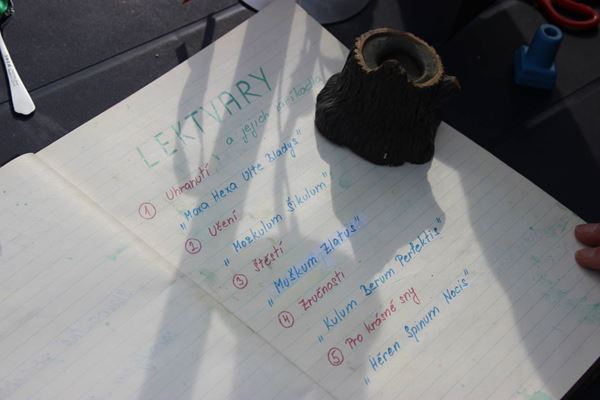 LEKTVARY
a jejich přikadla
① Uhranutí
"Maxa Hexa Ulte Bladys"
② Učení
"Mozkulum Šikulum"
③ Štěstí
"Muškum Zlatus"
④ Zručnosti
"Kulum Berum Perfektis"
⑤ Pro krásné sny
"Héren Spinum Nocis"